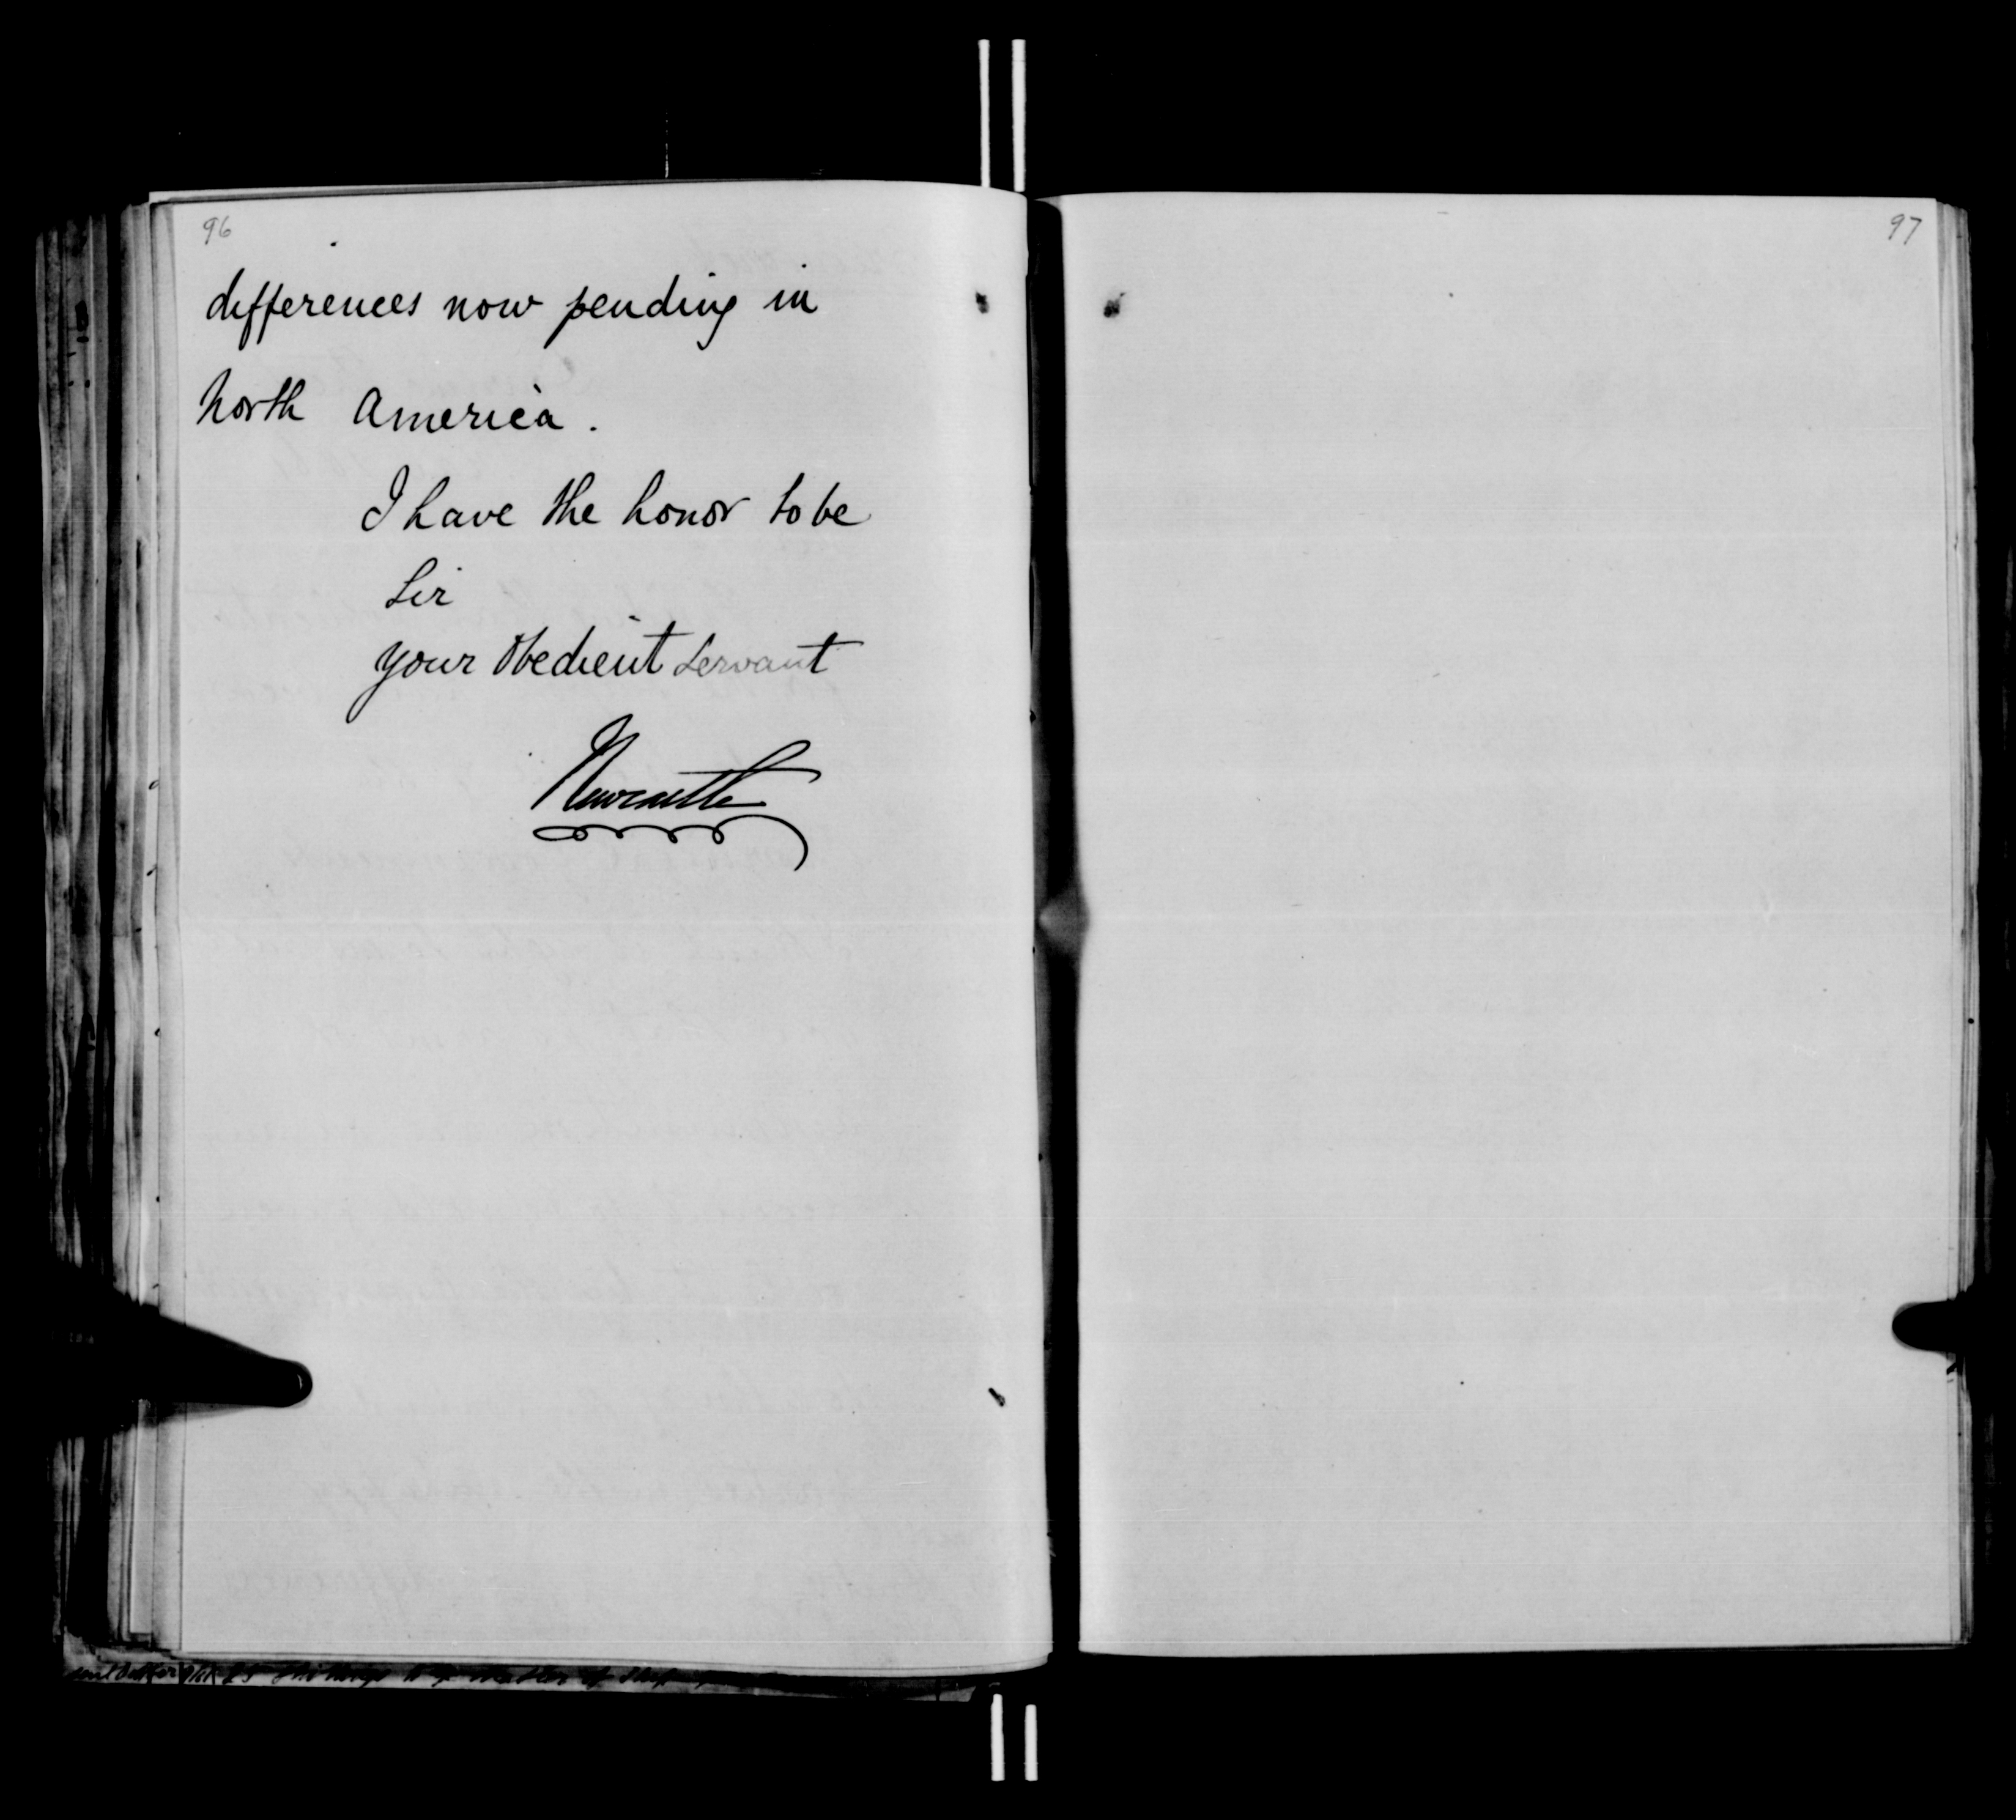 96
differences now pending in
North America.
I have the honor to be
Sir
Your Obedient Servant
Newcastle
97